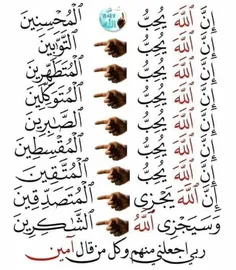 إِنَّ ٱللَّهَ يُحِبُّ ٱلْمُحْسِنِينَ
إِنَّ ٱللَّهَ يُحِبُّ ٱلتَّوَّابِينَ
إِنَّ ٱللَّهَ يُحِبُّ ٱلْمُتَطَهِّرِينَ
إِنَّ ٱللَّهَ يُحِبُّ ٱلْمُتَوَكِّلِينَ
إِنَّ ٱللَّهَ يُحِبُّ ٱلصَّابِرِينَ
إِنَّ ٱللَّهَ يُحِبُّ ٱلْمُقْسِطِينَ
إِنَّ ٱللَّهَ يُحِبُّ ٱلْمُتَّقِينَ
إِنَّ ٱللَّهَ يَجْزِى ٱلْمُتَصَدِّقِينَ
وَسَيَجْزِى ٱللَّهُ ٱلشَّـٰكِرِينَ
ربي اجعلني منهم وكل من قال آمين